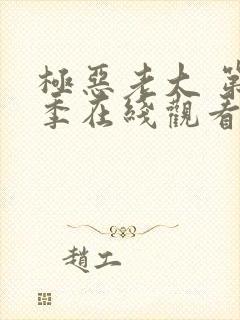 極惡老大 第
季在綫觀看
趙工